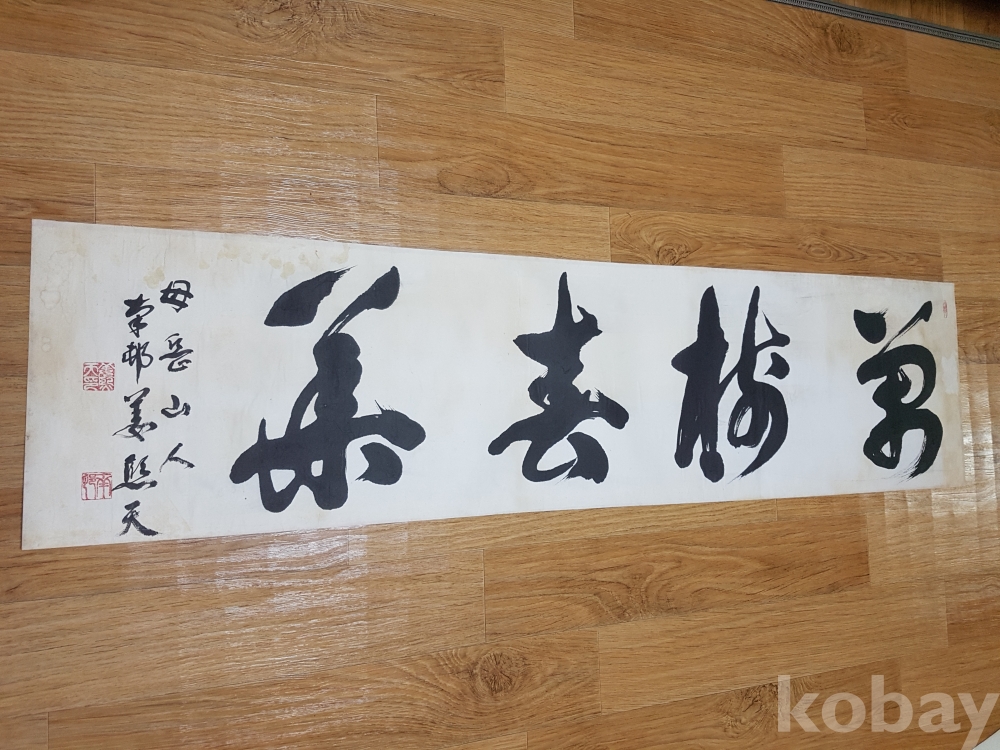 萬樹春華
母岳山人
邨姜熙天
kobay